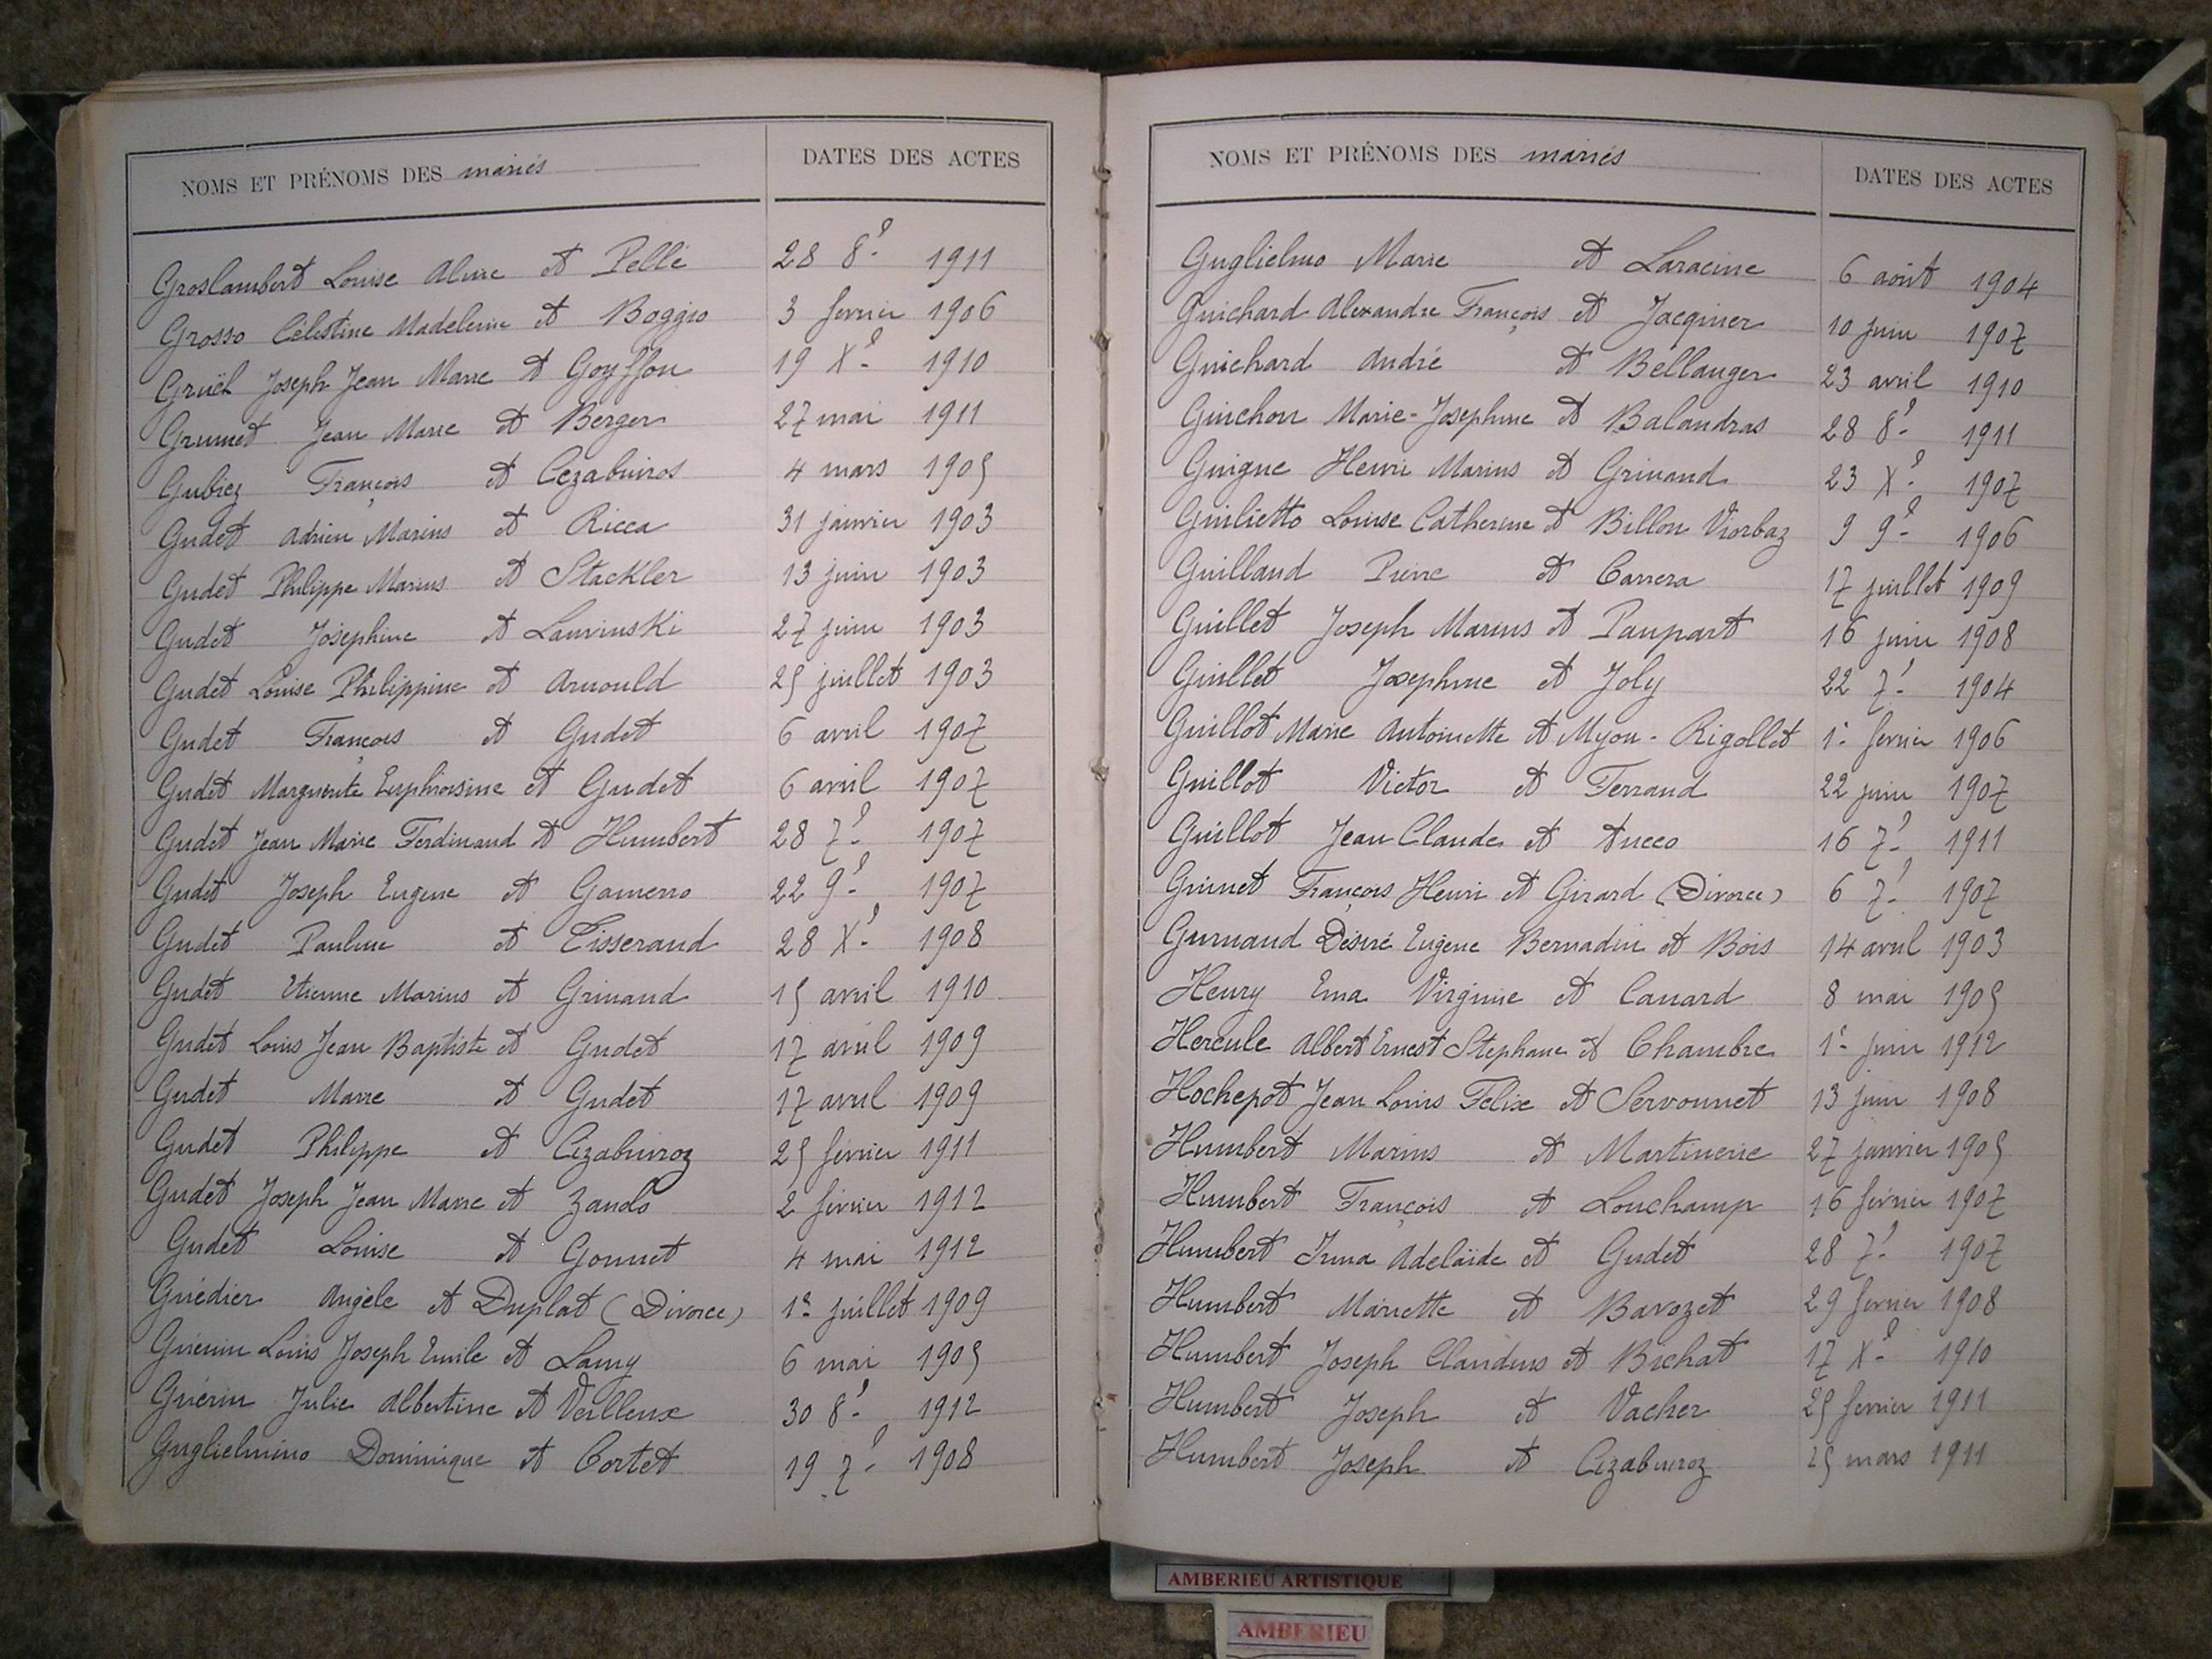 NOMS ET PRÉNOMS DES mariés DATES DES ACTES
Groslambert Louise Aline et Pellé 28 8? 1911
Grosso Célestine Madeleine et Boggio 3 fevrier 1906
Gruël Joseph Jean Marie et Goyffon 19 X? 1910
Grumet Jean Marie et Berger 27 mai 1911
Gubiez François et Cezabuiros 4 mars 1905
Gudet Adrien Marius et Ricca 31 janvier 1903
Gudet Philippe Marius et Stackler 13 juin 1903
Gudet Joséphine et LauvinsKi 27 juin 1903
Gudet Louise Philippine et Arnould 25 juillet 1903
Gudet François et Gudet 6 avril 1907
Gudet Marguerite Euphrosine et Gudet 6 avril 1907
Gudet Jean Marie Ferdinand et Humbert 28 7? 1907
Gudet Joseph Eugene et Gamerro 22 9? 1907
Gudet Pauline et Tisserand 28 X? 1908
Gudet Etienne Marius et Grinand 15 avril 1910
Gudet Louis Jean Baptiste et Gudet 17 avril 1909
Gudet Marie et Gudet 17 avril 1909
Gudet Philippe et Cizabuiroz 25 février 1911
Gudet Joseph Jean Marie et Zando 2 février 1912
Gudet Louise et Gonnet 4 mai 1912
Guédier Angèle et Duplat (Divorce) 1? juillet 1909
Guérin Louis Joseph Emile et Lamy 6 mai 1905
Guérin Julie Albertine et Veilleux 30 8? 1912
Guglielmino Dominique et Cortet 19 7? 1908
NOMS ET PRÉNOMS DES mariés DATES DES ACTES
Guglielmo Marie et Laracine 6 août 1904
Guichard Alexandre François et Jacquier 10 juin 1907
Guichard André et Bellanger 23 avril 1910
Guichon Marie-Josephine et Balandras 28 8? 1911
Guigue Henri Marius et Grinand 23 X? 1907
Guilietto Louise Catherine et Billon Viorbaz 9 9? 1906
Guilland Pierre et Carrera 17 juillet 1909
Guillet Joseph Marius et Paupart 16 juin 1908
Guillet Josephine et Joly 22 7? 1904
Guillot Marie Antoinette et Myon-Rigollet 1? fevrier 1906
Guillot Victor et Ferrand 22 juin 1907
Guillot Jean Claude et Aucco 16 7? 1911
Guinet François Henri et Girard (Divorce) 6 7? 1907
Gurnaud Désiré Eugene Bernadin et Bois 14 avril 1903
Henry Ema Virginie et Canard 8 mai 1905
Hercule Albert Ernest Stephane et Chambre 1? juin 1912
Hochepot Jean Louis Felix et Servonnet 13 juin 1908
Humbert Marius et Martinerie 27 janvier 1905
Humbert François et Louchamp 16 février 1907
Humbert Irma Adelaïde et Gudet 28 7? 1907
Humbert Mariette et Bavozet 29 fevrier 1908
Humbert Joseph Claudius et Bichat 17 X? 1910
Humbert Joseph et Vacher 25 fevrier 1911
Humbert Joseph et Cizabuiroz 25 mars 1911
AMBERIEU ARTISTIQUE
AMBERIEU